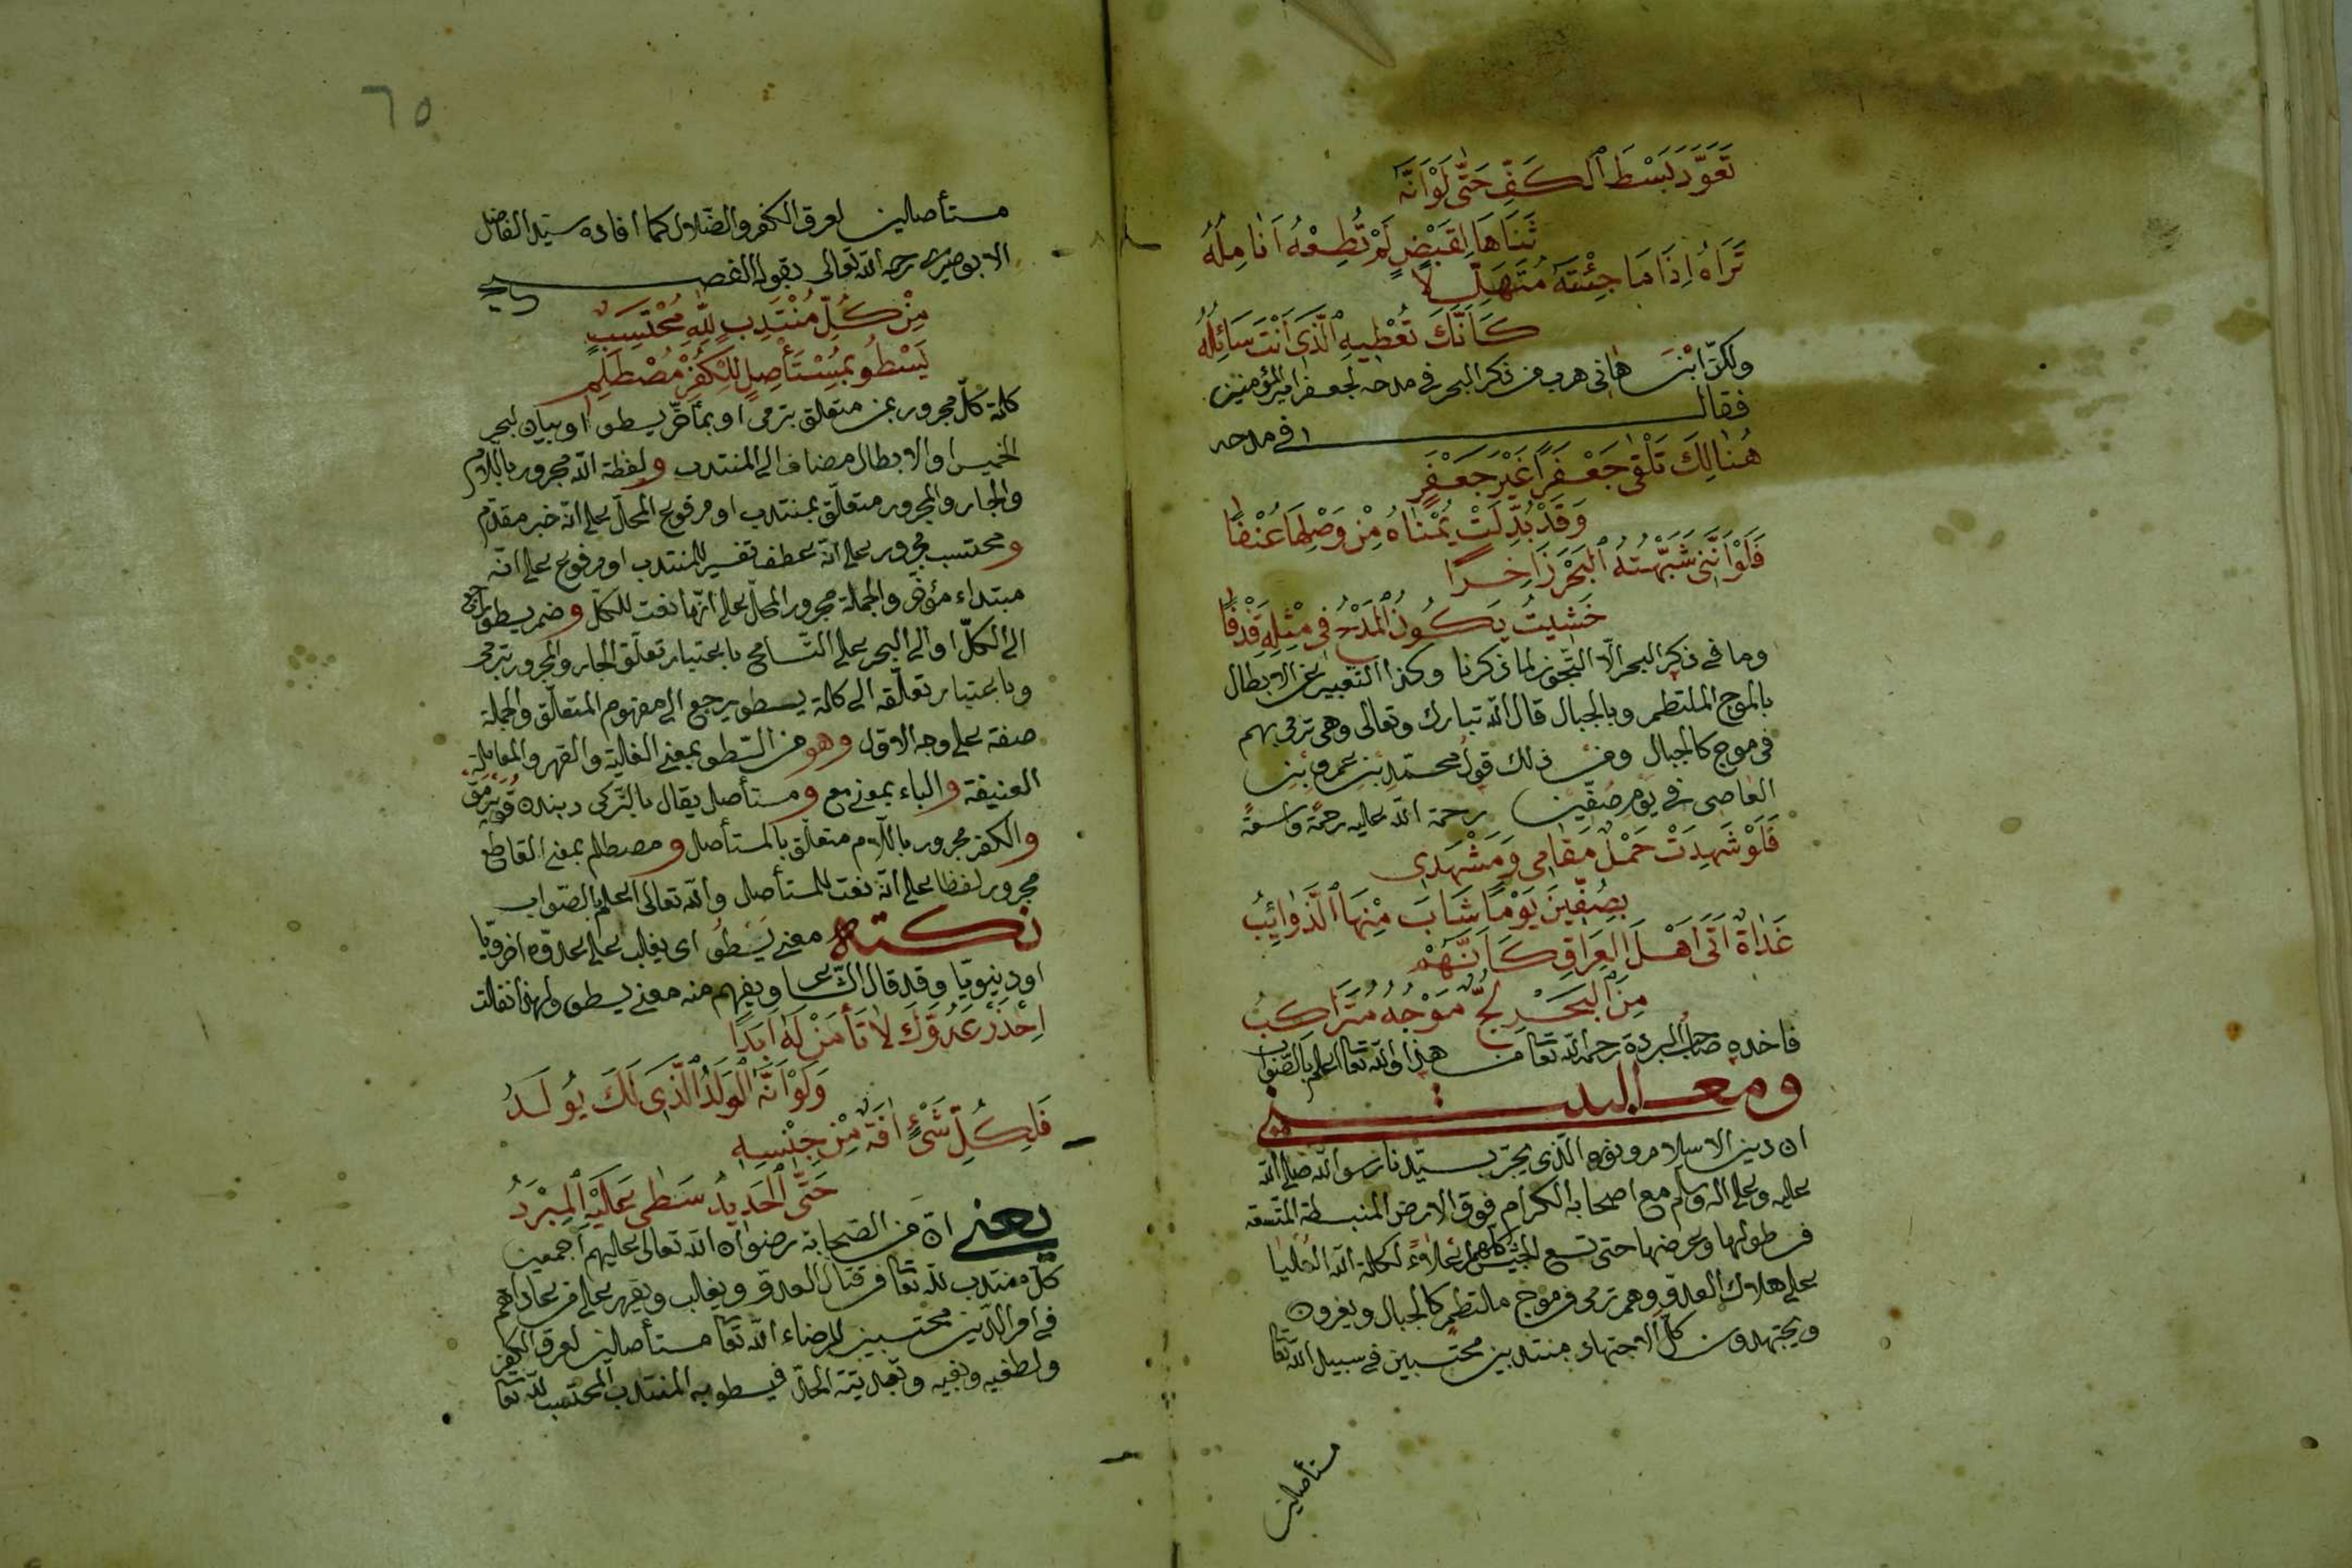 تَعَوَّدَ بَسْطَ الْكَفِّ حَتَّى لَوْ اَنَّهُ
ثَنَاهَا لِقَبْضٍ لَمْ تُطِعْهُ اَنَامِلُهُ
تَرَاهُ اِذَا مَا جِئْتَهُ مُتَهَلِّلًا
كَاَنَّكَ تُعْطِيهِ الَّذِى اَنْتَ سَائِلُهُ
ولكنّ ابْنَ هانى هرب من ذكر البحر فى مدحه لجعفر امير المؤمنين
فقال فى مدحه
هُنَالِكَ تَلْقَى جَعْفَرًا غَيْرَ جَعْفَرٍ
وَقَدْ بُدِّلَتْ يُمْنَاهُ مِنْ وَصْلِهَا عُنْفًا
فَلَوْ اَنَّنِى شَبَّهْتُهُ الْبَحْرَ زَاخِرًا
خَشِيتُ يَكُونُ الْمَدْحُ فِى مِثْلِهِ قَذْفًا
وما فى ذكر البحر الّا التّجوز لما ذكرنا وكذا التّعبير عن الابطال
بالموج الملتطم وبالجبال قال الله تبارك وتعالى وهى ترمى بهم
فى موج كالجبال ومن ذلك قول محمّد بن عمرو بن
العاصى فى يوم صفّين رحمة الله عليه رحمة واسعة
فَلَوْ شَهِدَتْ جَمْلٌ مَقَامِى وَمَشْهَدِى
بِصِفِّينَ يَوْمًا شَابَ مِنْهَا الذَّوَائِبُ
غَدَاةَ اَتَى اَهْلَ الْعِرَاقِ كَاَنَّهُمْ
مِنَ الْبَحْرِ لُجٌّ مَوْجُهُ مُتَرَاكِبُ
فاخذه صاحب البردة رحمه الله تعا من هذا والله تعا اعلم بالصّواب
ومعنى البيت
ان دين الاسلام ونوره الّذى يجرّ سيّدنا رسول الله صلى الله
عليه وعلى اله وسلم مع اصحابه الكرام فوق الارض المنبسطة المتّسعة
من طولها وعرضها حتى تسع الجيش كلهم اعلاءً لكلمة الله العليا
على هلاك العدوّ وهم ترمى من موج ملتطم كالجبال ويغزون
ويجتهدون كلّ الاجتهاد منتدبين محتسبين فى سبيل الله تعا
مستأصلين
٦٥
مستأصلين لعرق الكفر والضّلال كما افاده سيّد الفاضل
الابوصيرى رحمه الله تعالى بقوله الفصيح
مِنْ كُلِّ مُنْتَدِبٍ لِلّٰهِ مُحْتَسِبٍ
يَسْطُو بِمُسْتَأْصِلٍ لِلْكُفْرِ مُصْطَلِمِ
كلمة كلّ مجرور بمن متعلق بترمى او بمأخّر يسطو او بيان لبحر
الخميس او الابطال مضاف الى المنتدب ولفظة الله مجرور باللام
والجار والمجرور متعلّق بمنتدب او مرفوع المحل على انّه خبر مقدّم
ومحتسب مجرور على انّه عطف تفسير للمنتدب او مرفوع على انّه
مبتداء مؤخر والجملة مجرور المحلّ على انّها نعت للكلّ وضمر يسطو راجع
الى الكلّ او الى البحر على التّسامح باعتبار تعلّق الجار والمجرور بترمى
وباعتبار تعلّقه الى كلمة يسطو يرجع الى مفهوم المتعلّق والجملة
صفة على وجه الاوّل وهو من السّطو بمعنى الغلبة والقهر والمعاملة
العنيفة والباء بمعنى مع ومستأصل يقال بالتّركى دبندن قوپرمق
والكفر مجرور باللام متعلّق بالمستأصل ومصطلم بمعنى القاطع
مجرور لفظا على انّه نعت للمستأصل والله تعالى اعلم بالصّواب
نكتة معنى يَسْطُو اى يغلب على عدوّه اخرويّا
او دنيويّا وقد قال الشّاعر ويفهم منه معنى يسطو ولهذا نقلت
اِحْذَرْ عَدُوَّكَ لَا تَأْمَنْ لَهُ اَبَدًا
وَلَوْ اَنَّهُ الْوَلَدُ الَّذِى لَكَ يُولَدُ
فَلِكُلِّ شَىْءٍ اٰفَةٌ مِنْ جِنْسِهِ
حَتَّى الْحَدِيدُ سَطٰى عَلَيْهِ الْمِبْرَدُ
يعنى انّ من الصّحابة رضوان الله تعالى عليهم اجمعين
كلّ منتدب لله تعا من قتال العدوّ ويغلب ويقهر على من عاداهم
فى امر الدّين محتسبين لرضاء الله تعا مستأصلين لعرق الكفر
فيسطو به المنتدب المحتسب لله تعا